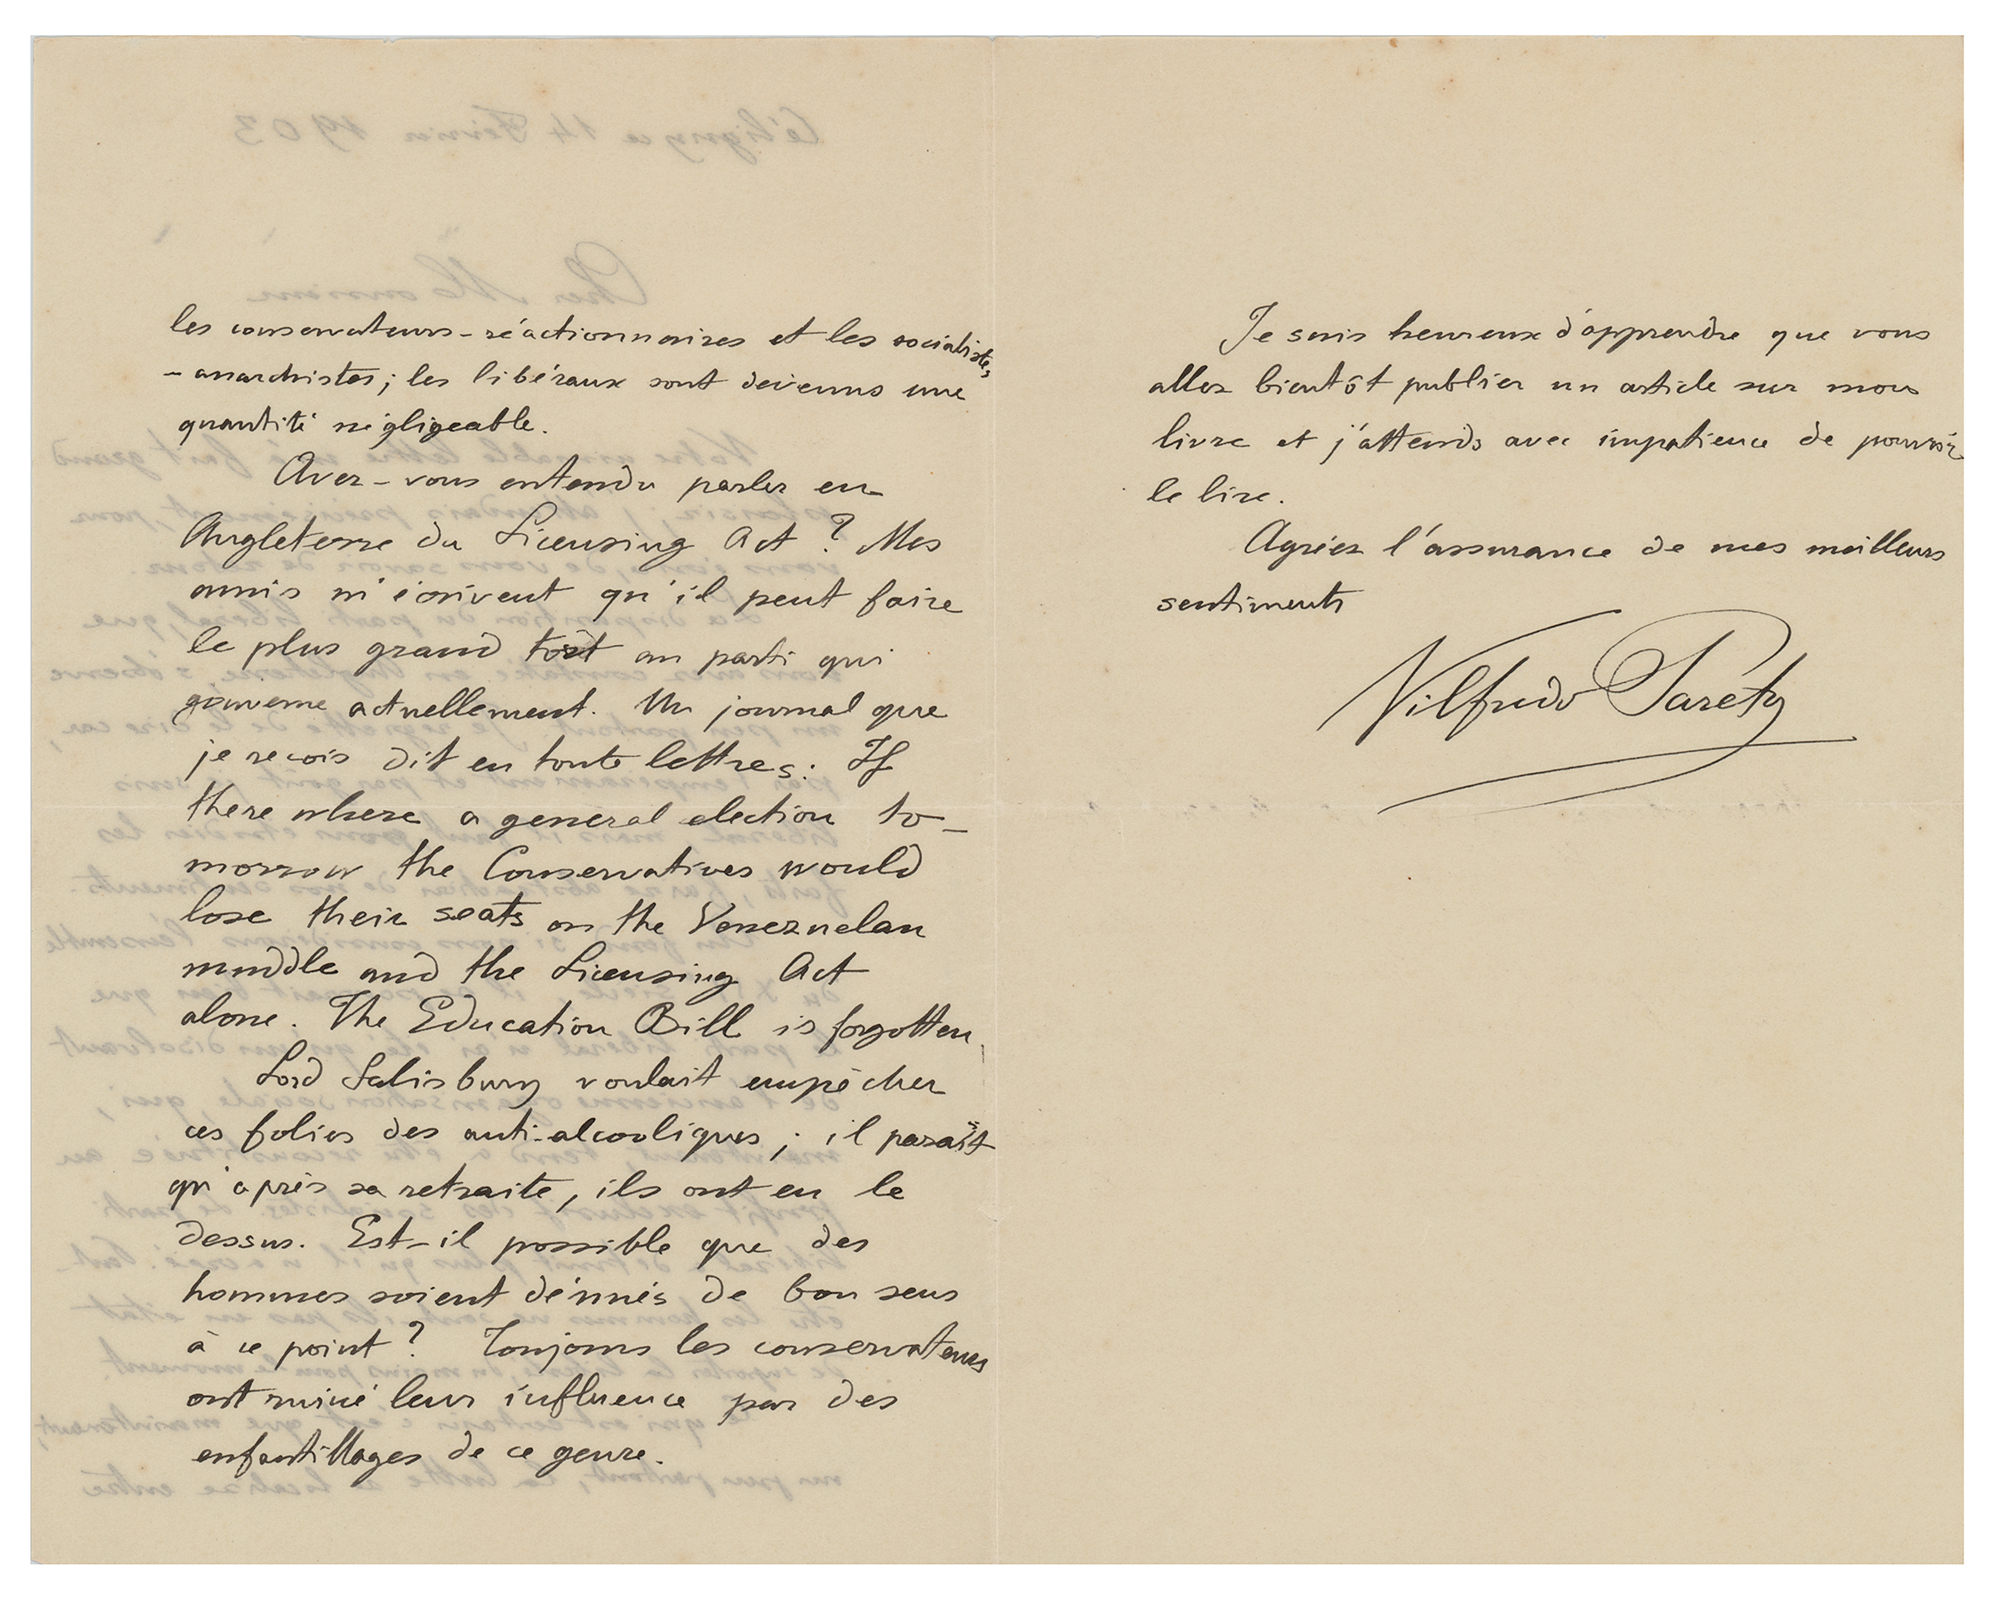 les conservateurs-réactionnaires et les socialistes
-anarchistes; les libéraux sont devenus une
quantité négligeable.
Avez-vous entendu parler en
Angleterre du Licensing Act? Mes
amis m'écrivent qu'il peut faire
le plus grand tort au parti qui
gouverne actuellement. Un journal que
je reçois dit en toute lettres: If
there where a general election to-
morrow the Conservatives would
lose their seats on the Venezuelan
muddle and the Licensing Act
alone. The Education Bill is forgotten.
Lord Salisbury voulait empêcher
ces folies des anti-alcooliques; il paraît
qu'après sa retraite, ils ont eu le
dessus. Est-il possible que des
hommes soient dénués de bon sens
à ce point? Toujours les conservateurs
ont ruiné leur influence par des
enfantillages de ce genre.
Je suis heureux d'apprendre que vous
allez bientôt publier un article sur mon
livre et j'attends avec impatience de pouvoir
le lire.
Agréez l'assurance de mes meilleurs
sentiments
Vilfredo Pareto